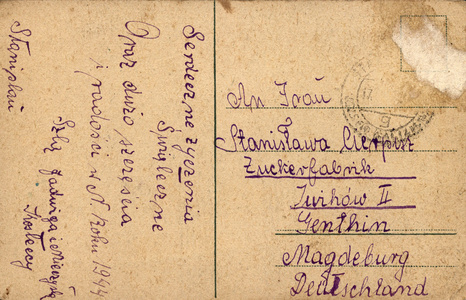 Serdeczne życzenia
Świąteczne
Oraz dużo szczeńścia
i radości w N. roku 1944
Szlą Jadwiga i Mieczysł
Stanisław
An Frau
Stanisława Cierpisz
Zuckerfabrik
II
Genthin
Magdeburg
Deutschland
17
9